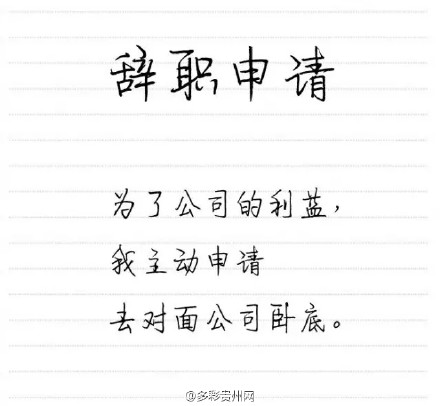 辞职申请
为了公司的利蓝，
我主动申请
去对面公司卧底。
@多彩贵州网